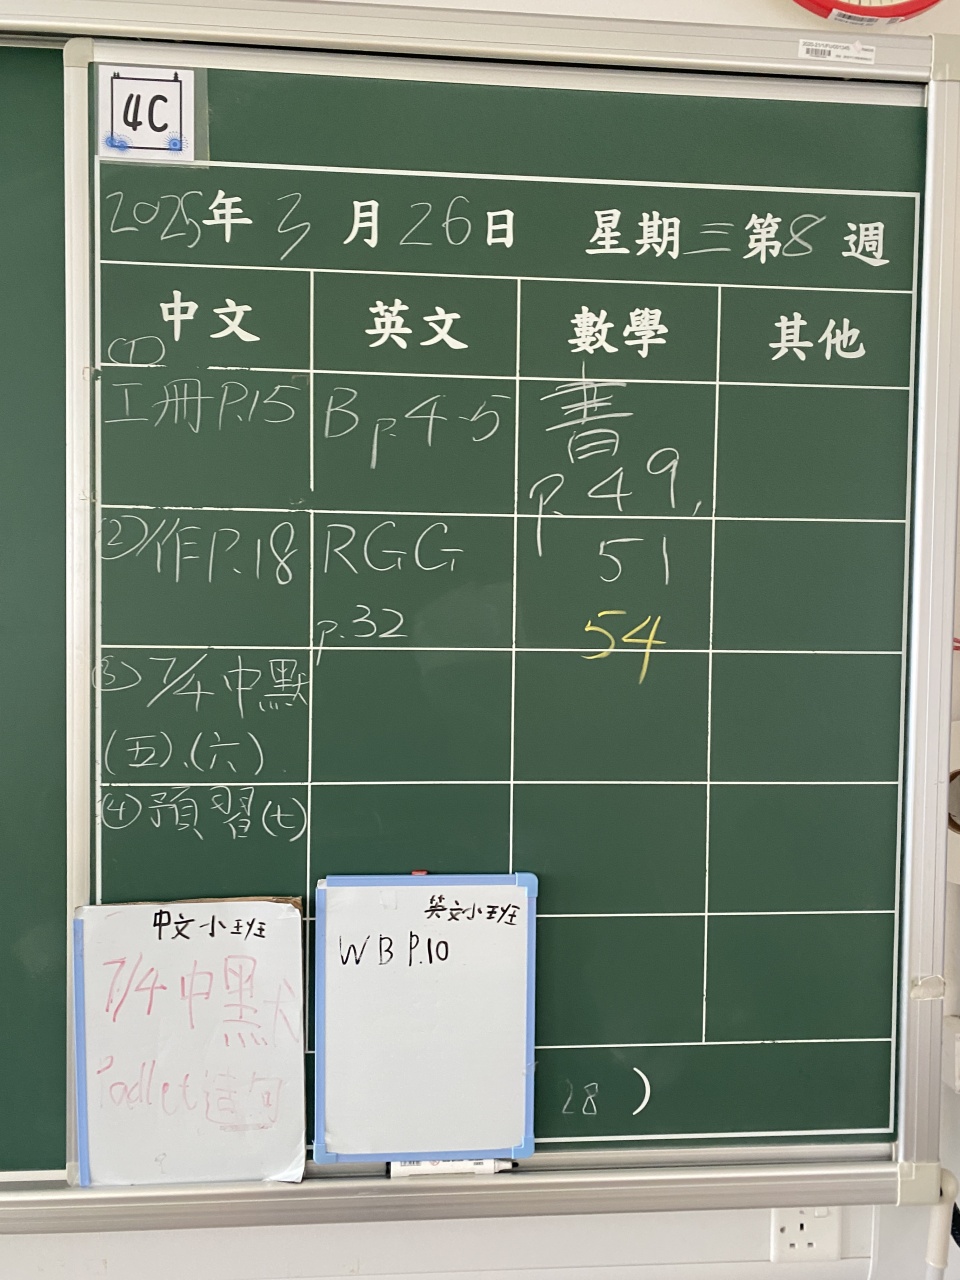 4C
2025年 3月 26日 星期三第8週
中文 英文 數學 其他
①
工冊P.15
②作P.18
③7/4中默
(五)、(六)
④預習(七)
B p.4-5
RGG
p.32
書
p.49,
51
54
28 )
中文小班
7/4中默
Padlet造句
英文小班
WB P.10